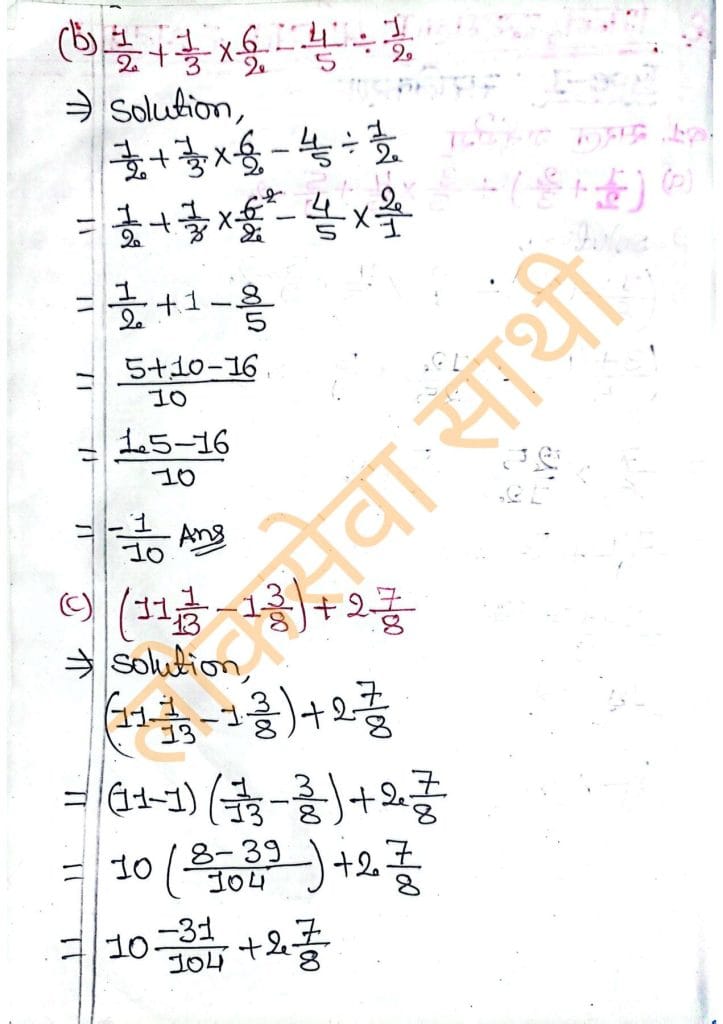 (b) 1/2 + 1/3 × 6/2 - 4/5 ÷ 1/2
⇒ Solution,
1/2 + 1/3 × 6/2 - 4/5 ÷ 1/2
= 1/2 + 1/3 × 6²/2 - 4/5 × 2/1
= 1/2 + 1 - 8/5
= (5+10-16)/10
= (15-16)/10
= -1/10 Ans
(c) (11 1/13 - 1 3/8) + 2 7/8
⇒ Solution,
(11 1/13 - 1 3/8) + 2 7/8
= (11-1) (1/13 - 3/8) + 2 7/8
= 10 ((8-39)/104) + 2 7/8
= 10 -31/104 + 2 7/8
लोकसेवा साथी